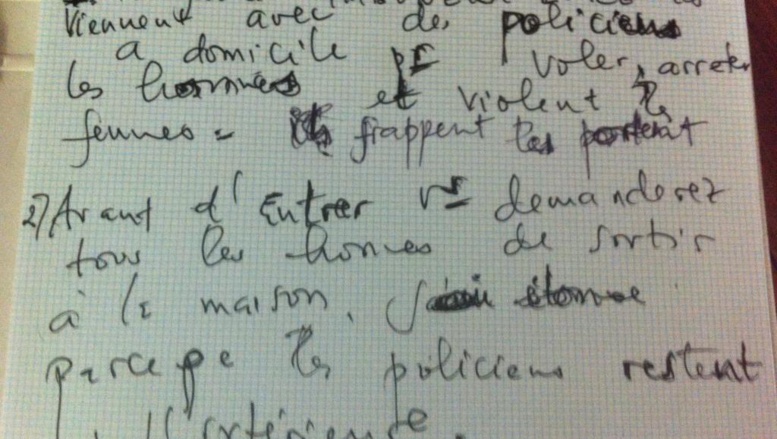 viennent avec des policiers
a domicile pr voler, arreter
les hommes et violent les
femmes = frappent les portent
2) Avant d'Entrer vs demanderez
tous les hommes de sortir
à la maison. J'ai étonné
parceque les policiens restent
l'extérieure.